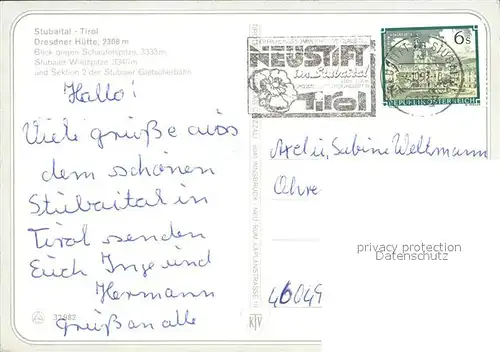 Stubaital - Tirol
Dresdner Hütte, 2308 m
Blick gegen Schaufelspitze, 3333m
Stubaier Wildspitze, 3340m
und Sektion 2 der Stubaier Gletscherbahn
Hallo!
Viele grüße aus
dem schönen
Stubaital in
Tirol senden
Euch Inge und
Hermann
grüß an alle
32982
KTV
NEUSTIFT
im Stubaital
Tirol
6 S
REPUBLIK ÖSTERREICH
Axel u. Sabine Weltmann
Ohre
46049
privacy protection